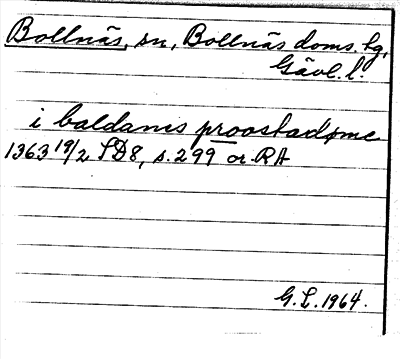 Bollnäs, sn, Bollnäs doms. hg,
Gävl. l.
i baldanes proostadøme
1363 19/2 SD8, s. 299 or. RA
G. L. 1964.